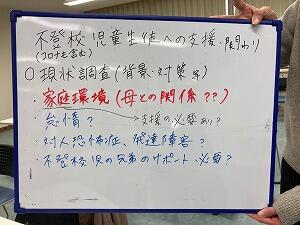 不登校児童生徒への支援・関わり
(コロナも含む)
○現状調査(背景・対策等)
・家庭環境(母との関係??)
・怠惰? → 支援の必要あり?
・対人恐怖症、発達障害?
・不登校児の兄弟のサポート必要?